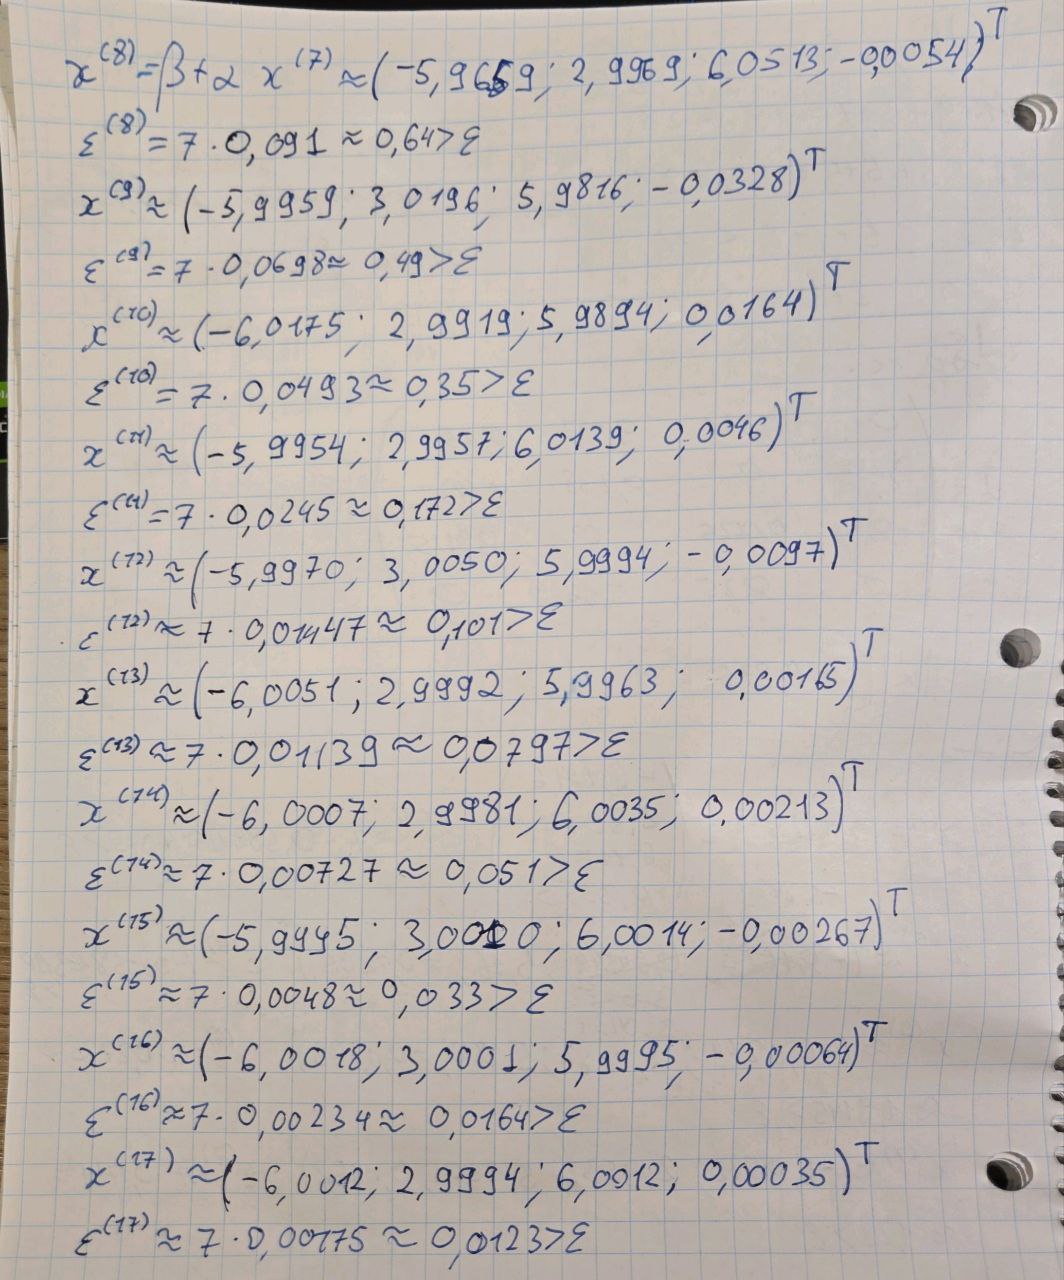 x⁽⁸⁾ = β + α x⁽⁷⁾ ≈ (-5,9659; 2,9969; 6,0513; -0,0054)ᵀ
ε⁽⁸⁾ = 7 · 0,091 ≈ 0,64 > ε
x⁽⁹⁾ ≈ (-5,9959; 3,0196; 5,9816; -0,0328)ᵀ
ε⁽⁹⁾ = 7 · 0,0698 ≈ 0,49 > ε
x⁽¹⁰⁾ ≈ (-6,0175; 2,9919; 5,9894; 0,0164)ᵀ
ε⁽¹⁰⁾ = 7 · 0,0493 ≈ 0,35 > ε
x⁽¹¹⁾ ≈ (-5,9954; 2,9957; 6,0139; 0,0046)ᵀ
ε⁽¹¹⁾ = 7 · 0,0245 ≈ 0,172 > ε
x⁽¹²⁾ ≈ (-5,9970; 3,0050; 5,9994; -0,0097)ᵀ
ε⁽¹²⁾ ≈ 7 · 0,01447 ≈ 0,101 > ε
x⁽¹³⁾ ≈ (-6,0051; 2,9992; 5,9963; 0,00165)ᵀ
ε⁽¹³⁾ ≈ 7 · 0,01139 ≈ 0,0797 > ε
x⁽¹⁴⁾ ≈ (-6,0007; 2,9981; 6,0035; 0,00213)ᵀ
ε⁽¹⁴⁾ ≈ 7 · 0,00727 ≈ 0,051 > ε
x⁽¹⁵⁾ ≈ (-5,9995; 3,0010; 6,0014; -0,00267)ᵀ
ε⁽¹⁵⁾ ≈ 7 · 0,0048 ≈ 0,033 > ε
x⁽¹⁶⁾ ≈ (-6,0018; 3,0001; 5,9995; -0,00064)ᵀ
ε⁽¹⁶⁾ ≈ 7 · 0,00234 ≈ 0,0164 > ε
x⁽¹⁷⁾ ≈ (-6,0012; 2,9994; 6,0012; 0,00035)ᵀ
ε⁽¹⁷⁾ ≈ 7 · 0,00175 ≈ 0,0123 > ε